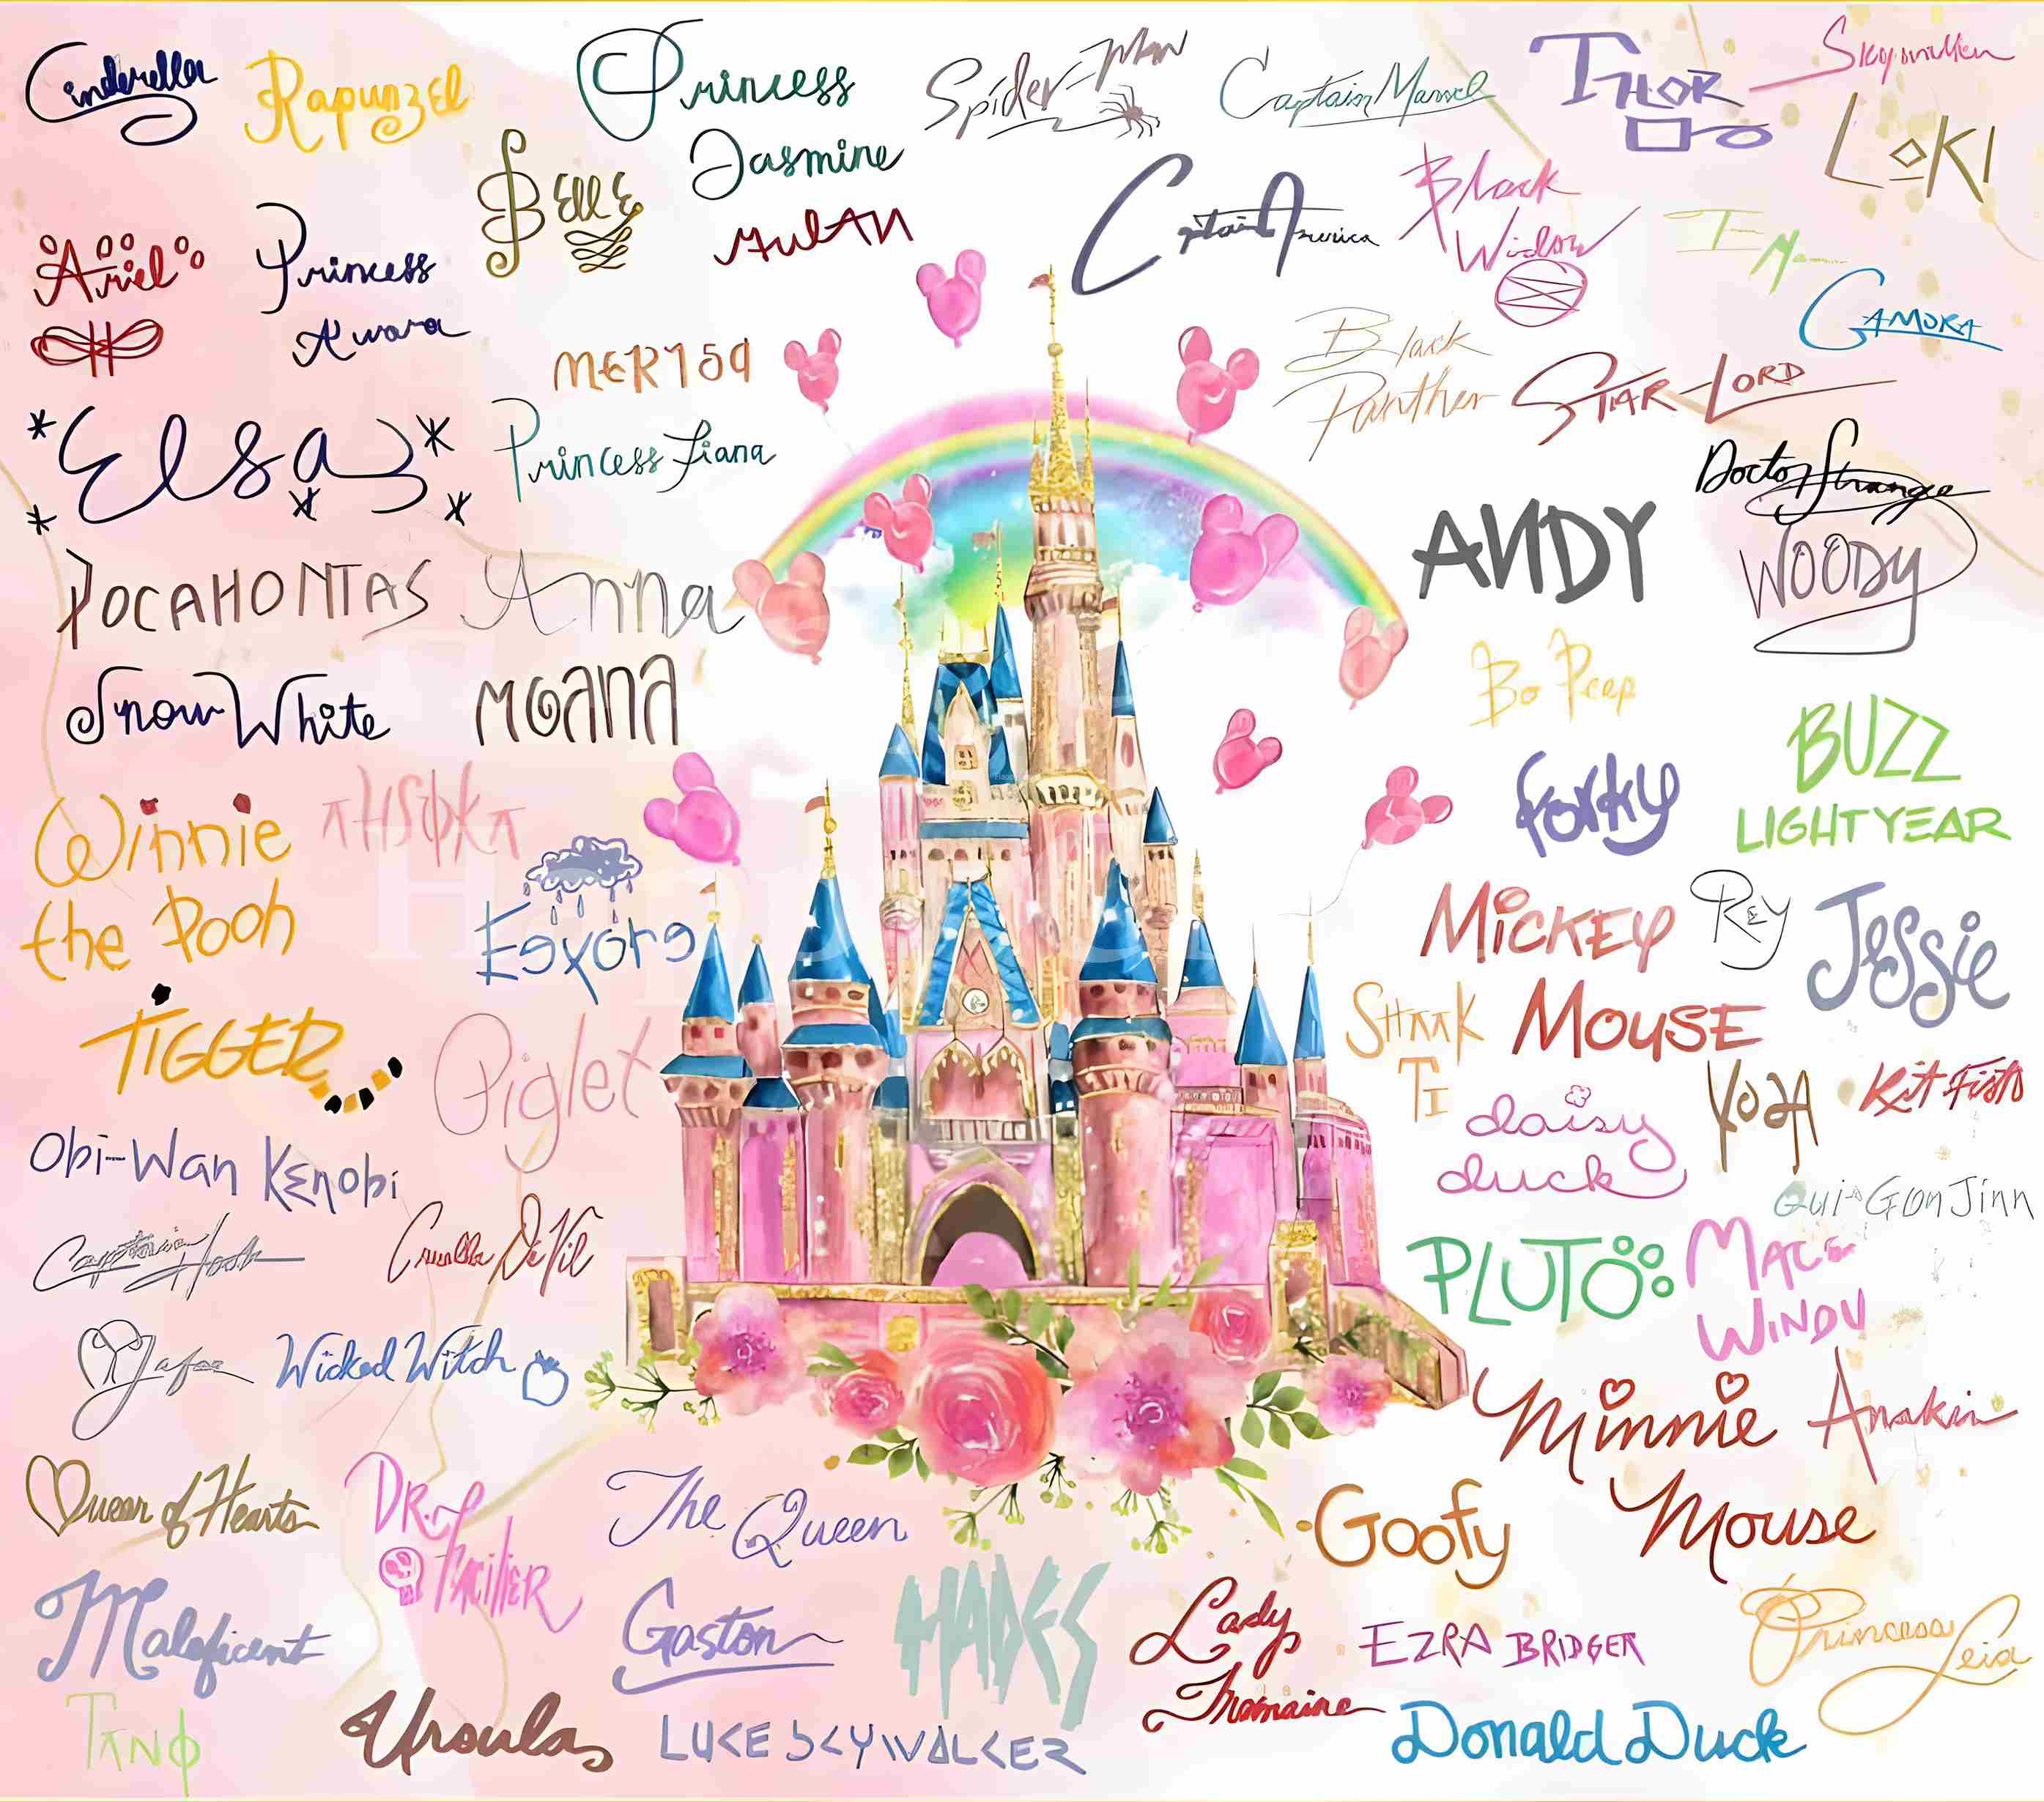 Cinderella
Rapunzel
Princess
Jasmine
Spider-Man
Captain Marvel
THOR
LOKI
Belle
MulAN
Captain America
Black
Widow
Ariel
Princess
Awora
GAMORA
MERIDA
Black
Panther
STAR-LORD
Elsa
Princess Tiana
Doctor Strange
ANDY
WOODY
POCAHONTAS
Anna
Bo Peep
Snow White
MOANA
BUZZ
LIGHTYEAR
forky
Winnie
the Pooh
AHSOKA
Eeyore
MiCKEY
MOUSE
REY
Jessie
TIGGER
Piglet
SHAAK
TI
daisy
duck
YODA
Kit Fisto
Obi-Wan Kenobi
Qui-Gon Jinn
Captain Hook
Cruella De Vil
PLUTO
MACE
WINDU
Jafar
Wicked Witch
Minnie
Mouse
Anakin
Queen of Hearts
DR.
Facilier
The Queen
Goofy
Maleficent
Gaston
HADES
Lady
Tremaine
EZRA BRIDGER
Princess
Leia
TANO
Ursula
LUKE SKYWALKER
Donald Duck